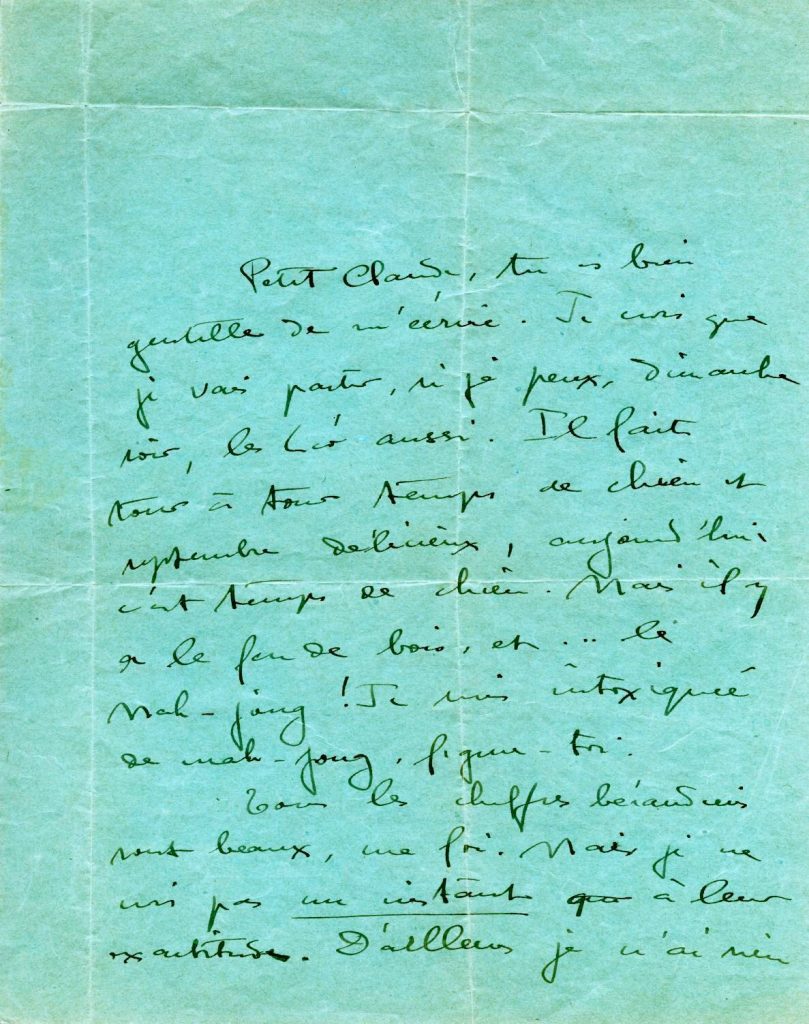 Petit Claude, tu es bien
gentille de m'écrire. Je crois que
je vais partir, si je peux, dimanche
soir, les Léo aussi. Il fait
tour à tour temps de chien et
septembre délicieux, aujourd'hui
c'est temps de chien. Mais il y
a le feu de bois, et... le
Mah-jong ! Je suis intoxiquée
de mah-jong, figure-toi.
Tous les chiffres bérandiens
sont beaux, ma foi. Mais je ne
crois pas un instant à leur
exactitude. D'ailleurs je n'ai rien